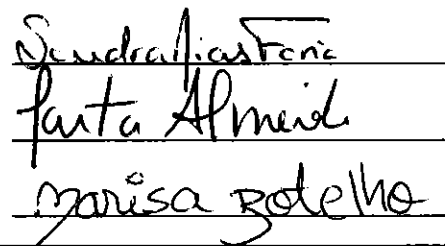 Sandra Dias Faria
Marta Almeid
Marisa Botelho